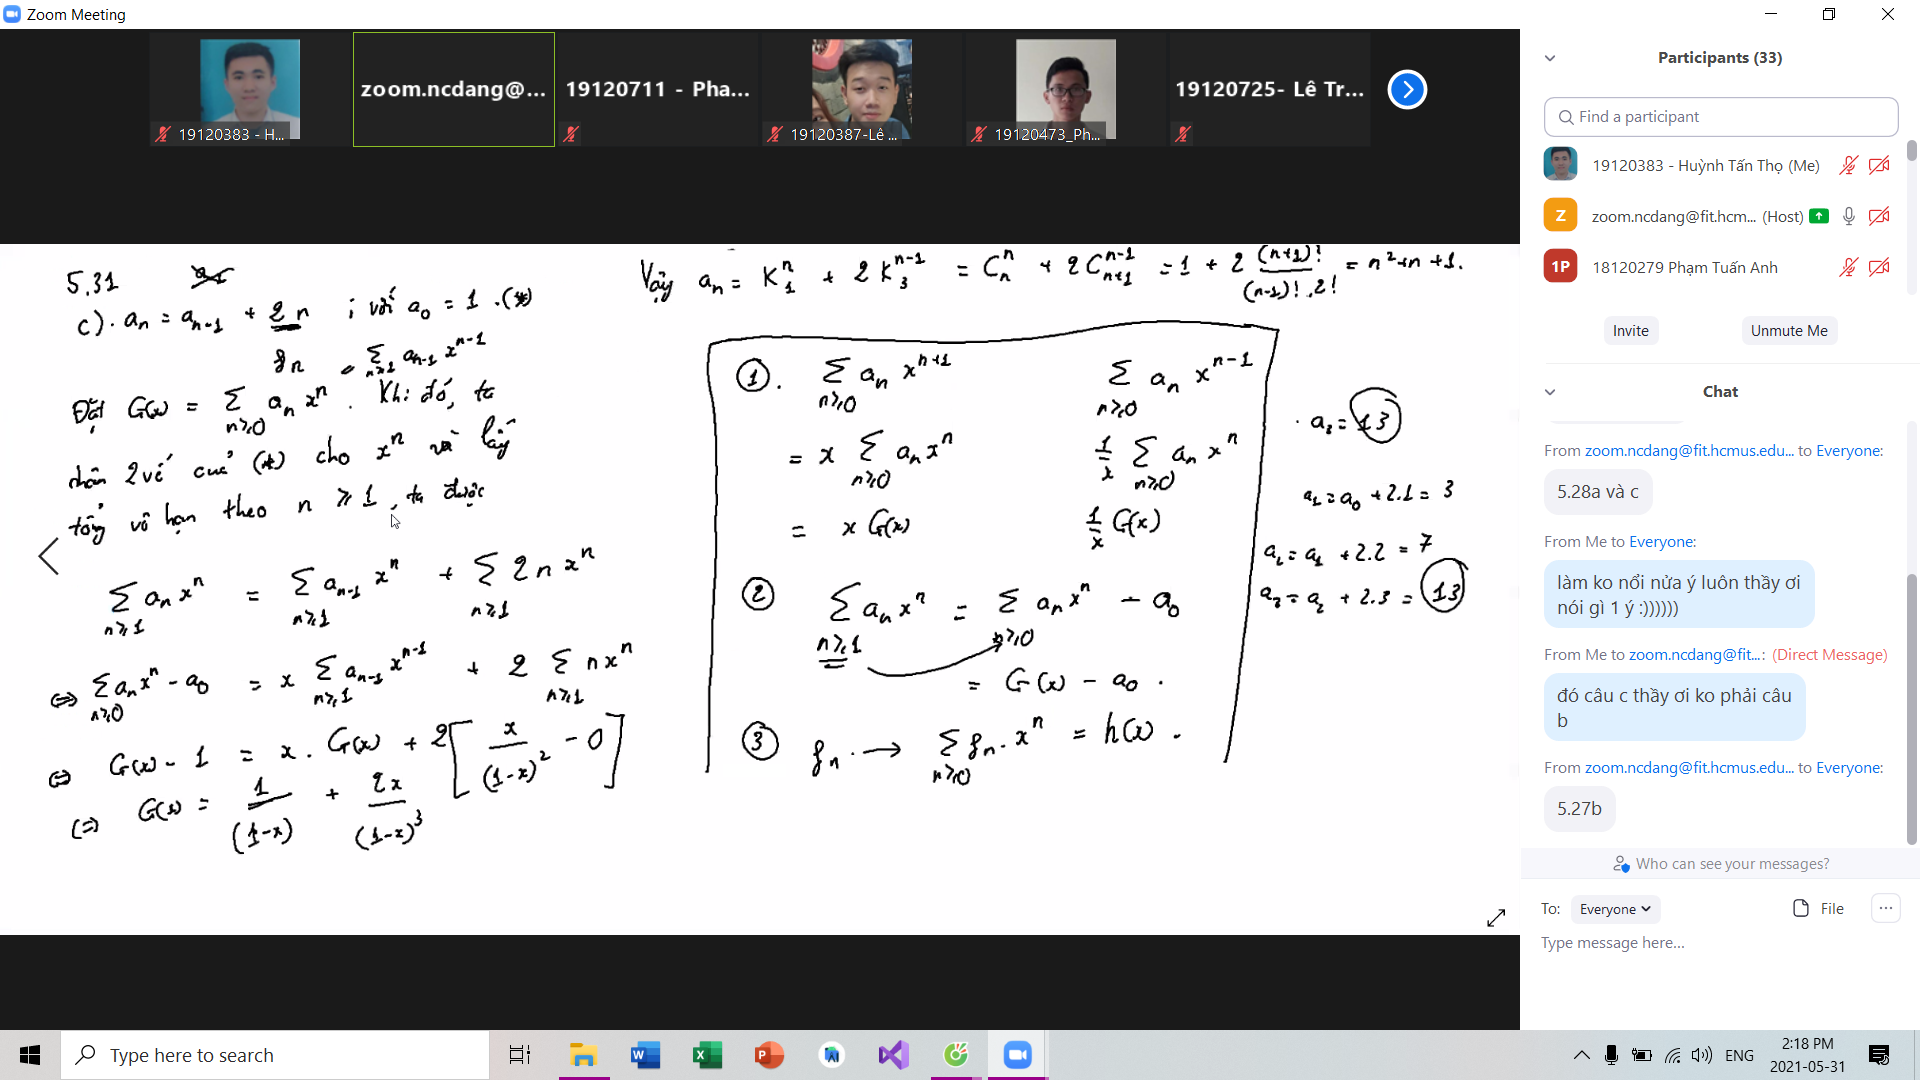 Zoom Meeting
19120383 - H...
zoom.ncdang@...
19120711 - Pha...
19120387-Lê ...
19120473_Ph...
19120725- Lê Tr...
5.31
c). aₙ = aₙ₋₁ + 2n ; với a₀ = 1 . (*)
gₙ
Σ_{n≥1} aₙ₋₁ xⁿ⁻¹
Đặt G(x) = Σ_{n≥0} aₙ xⁿ . Khi đó, ta
nhân 2 vế của (*) cho xⁿ và lấy
tổng vô hạn theo n ≥ 1 , ta được
Σ_{n≥1} aₙ xⁿ = Σ_{n≥1} aₙ₋₁ xⁿ + Σ_{n≥1} 2n xⁿ
⇔ Σ_{n≥0} aₙ xⁿ - a₀ = x Σ_{n≥1} aₙ₋₁ xⁿ⁻¹ + 2 Σ_{n≥1} n xⁿ
⇔ G(x) - 1 = x . G(x) + 2 [ x/(1-x)² - 0 ]
⇔ G(x) = 1/(1-x) + 2x/(1-x)³
Vậy aₙ = K₁ⁿ + 2 K₃ⁿ⁻¹ = Cₙⁿ + 2 Cₙ₊₁ⁿ⁻¹ = 1 + 2 (n+1)!/((n-1)! . 2!) = n² + n + 1.
① . Σ_{n≥0} aₙ xⁿ⁺¹
= x Σ_{n≥0} aₙ xⁿ
= x G(x)
Σ_{n≥0} aₙ xⁿ⁻¹
1/x Σ_{n≥0} aₙ xⁿ
1/x G(x)
② Σ_{n≥1} aₙ xⁿ = Σ_{n≥0} aₙ xⁿ - a₀
= G(x) - a₀ .
③ gₙ . → Σ_{n≥0} gₙ . xⁿ = h(x) .
. a₃ = 13
a₁ = a₀ + 2.1 = 3
a₂ = a₁ + 2.2 = 7
a₃ = a₂ + 2.3 = 13
Participants (33)
Find a participant
19120383 - Huỳnh Tấn Thọ (Me)
Z zoom.ncdang@fit.hcm... (Host)
1P 18120279 Phạm Tuấn Anh
Invite
Unmute Me
Chat
From zoom.ncdang@fit.hcmus.edu... to Everyone:
5.28a và c
From Me to Everyone:
làm ko nổi nửa ý luôn thầy ơi
nói gì 1 ý :))))))
From Me to zoom.ncdang@fit...: (Direct Message)
đó câu c thầy ơi ko phải câu
b
From zoom.ncdang@fit.hcmus.edu... to Everyone:
5.27b
Who can see your messages?
To: Everyone
File
Type message here...
Type here to search
ENG
2:18 PM
2021-05-31